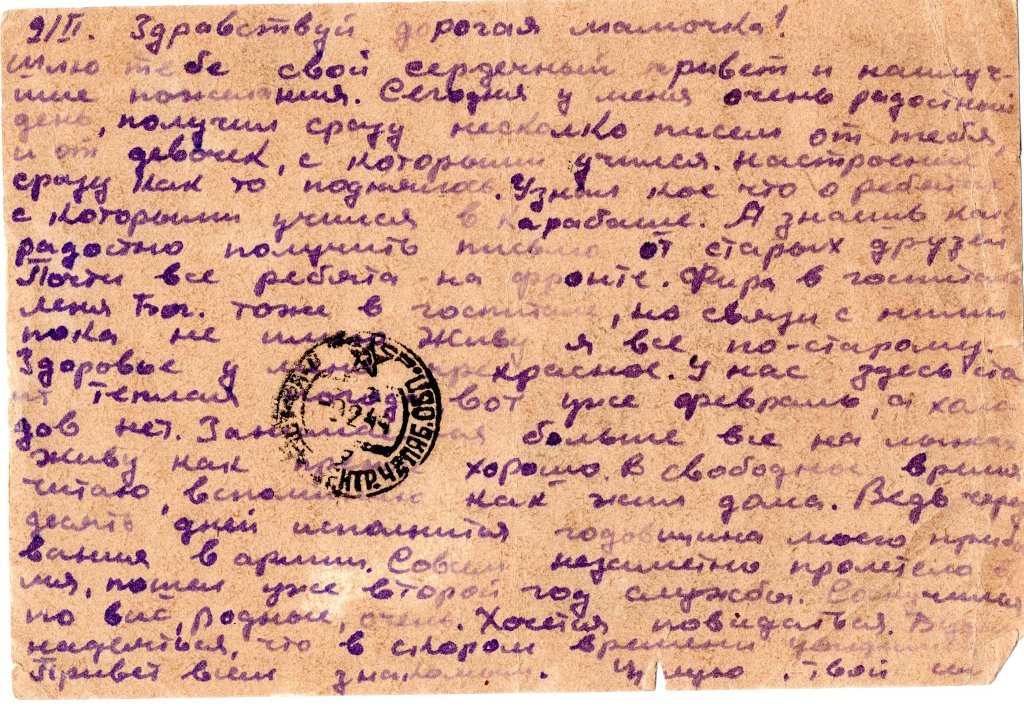 9/II. Здравствуй дорогая мамочка!
Шлю тебе свой сердечный привет и наилуч-
шие пожелания. Сегодня у меня очень радостный
день, получил сразу несколько писем от тебя,
и от девочек, с которыми учился. Настроение
сразу как то поднялось. Узнал кое что о ребятах
с которыми учился в Карабаше. А знаешь как
радостно получить письмо от старых друзей
Почти все ребята на фронте. Фира в госпитале
Леня тоже в госпитале, но связи с ними
пока не имею. Живу я все по-старому.
Здоровье у меня прекрасное. У нас здесь сто
ит теплая погода вот уже февраль, а холо
дов нет. Занимаемся больше все на лыжах
Живу как хорошо. В свободное время
читаю, вспоминаю как жил дома. Ведь через
десять дней исполнится годовщина моего пребы
вания в армии. Совсем незаметно пролетело
мя, пошел уже второй год службы. Соскучился
по вас, родные, очень. Хочется повидаться. Буду
надеяться, что в скором времени увидимся
Привет всем знакомым. Целую. Твой
ЦЕНТР. ЧЕЛЯБ. ОБЛ